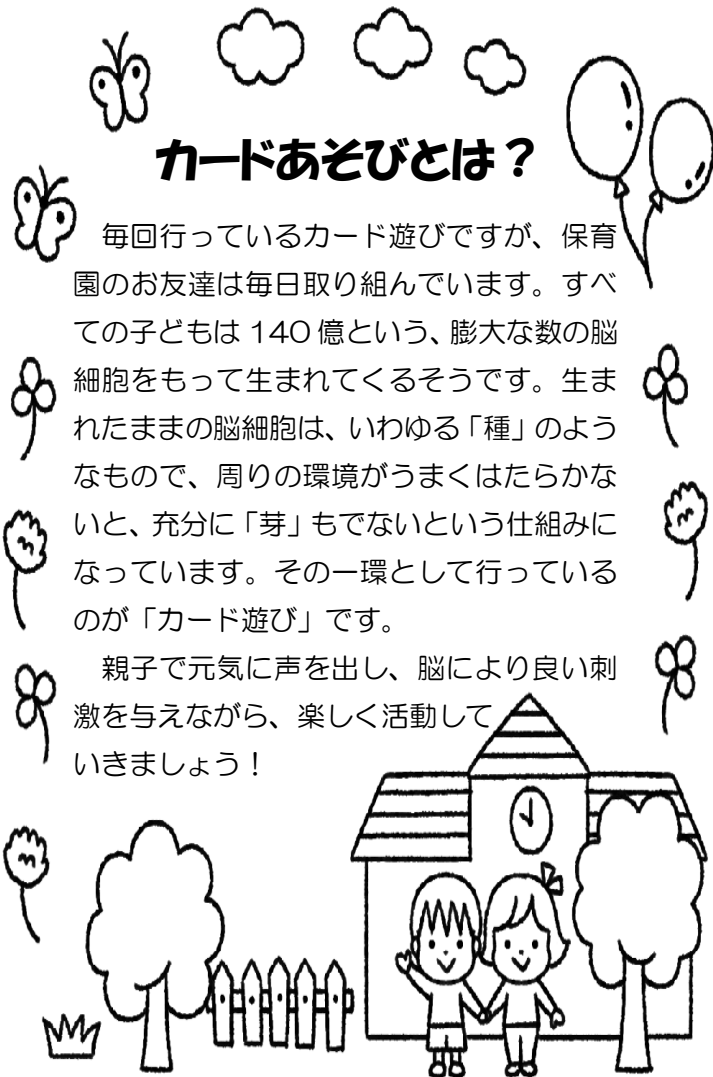 カードあそびとは？
　毎回行っているカード遊びですが、保育
園のお友達は毎日取り組んでいます。すべ
ての子どもは 140 億という、膨大な数の脳
細胞をもって生まれてくるそうです。生ま
れたままの脳細胞は、いわゆる「種」のよう
なもので、周りの環境がうまくはたらかな
いと、充分に「芽」もでないという仕組みに
なっています。その一環として行っている
のが「カード遊び」です。
　親子で元気に声を出し、脳により良い刺
激を与えながら、楽しく活動して
いきましょう！